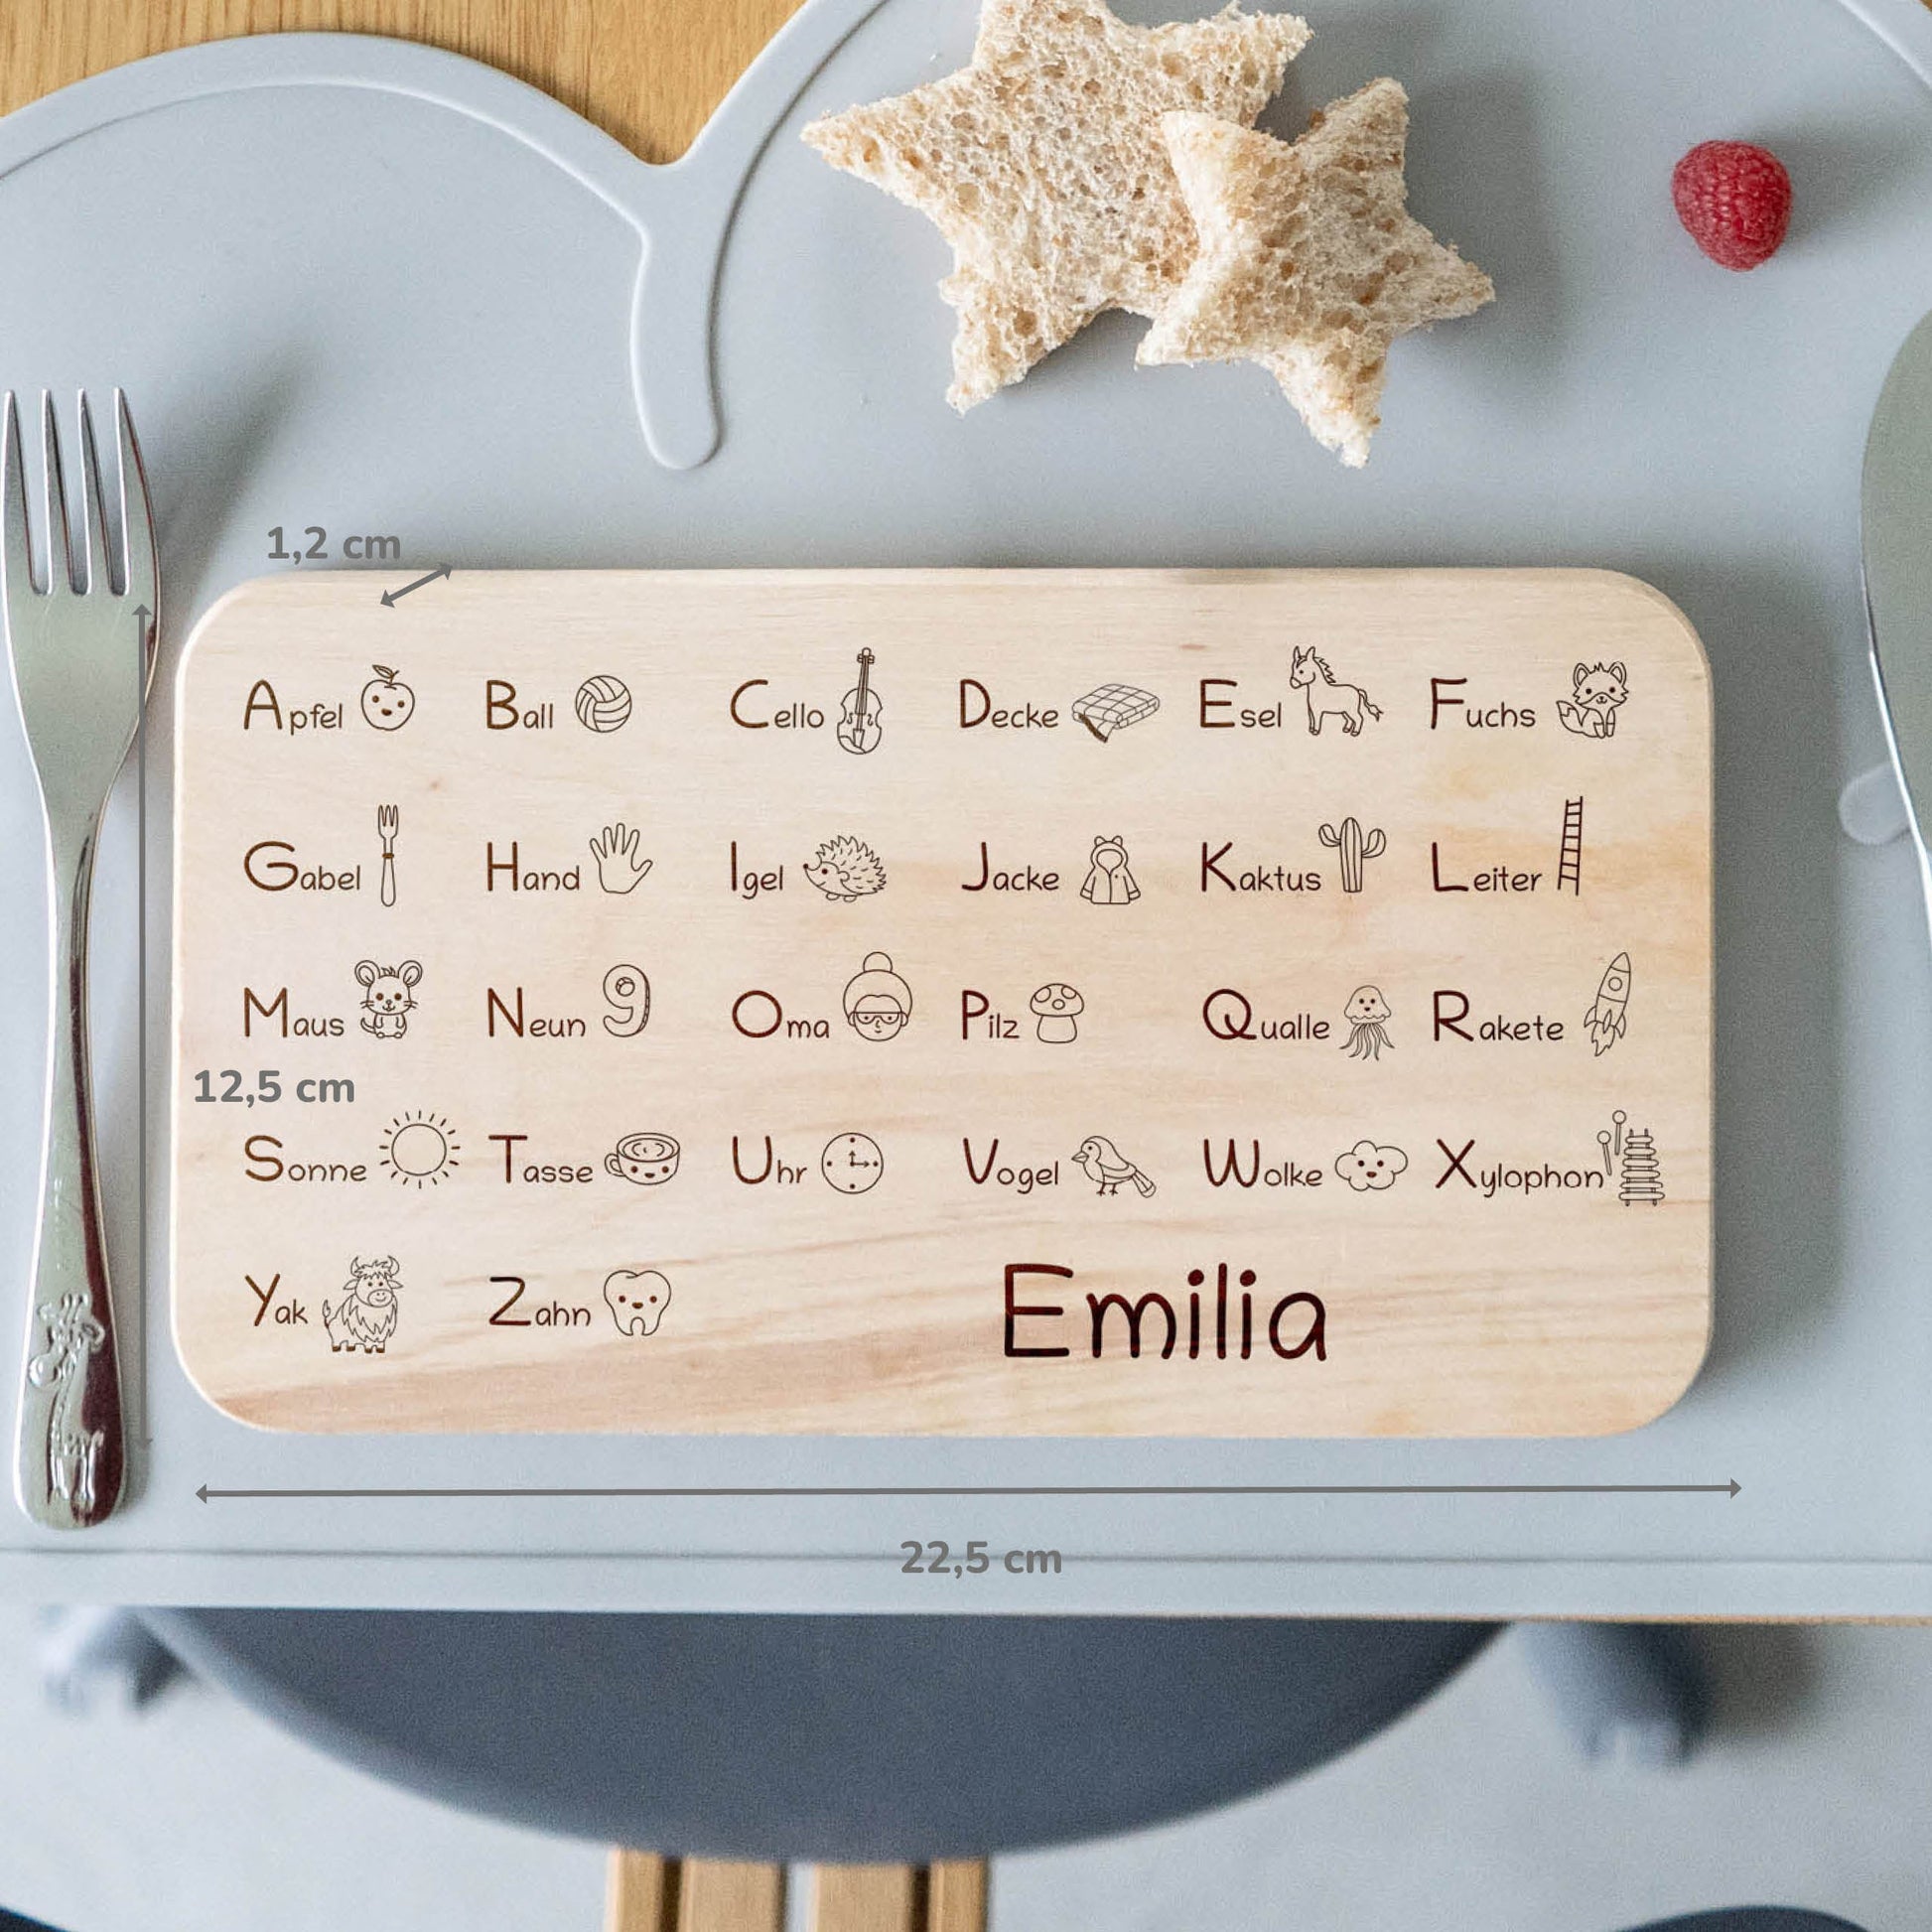 1,2 cm
Apfel Ball Cello Decke Esel Fuchs
Gabel Hand Igel Jacke Kaktus Leiter
Maus Neun 9 Oma Pilz Qualle Rakete
12,5 cm
Sonne Tasse Uhr Vogel Wolke Xylophon
Yak Zahn Emilia
22,5 cm